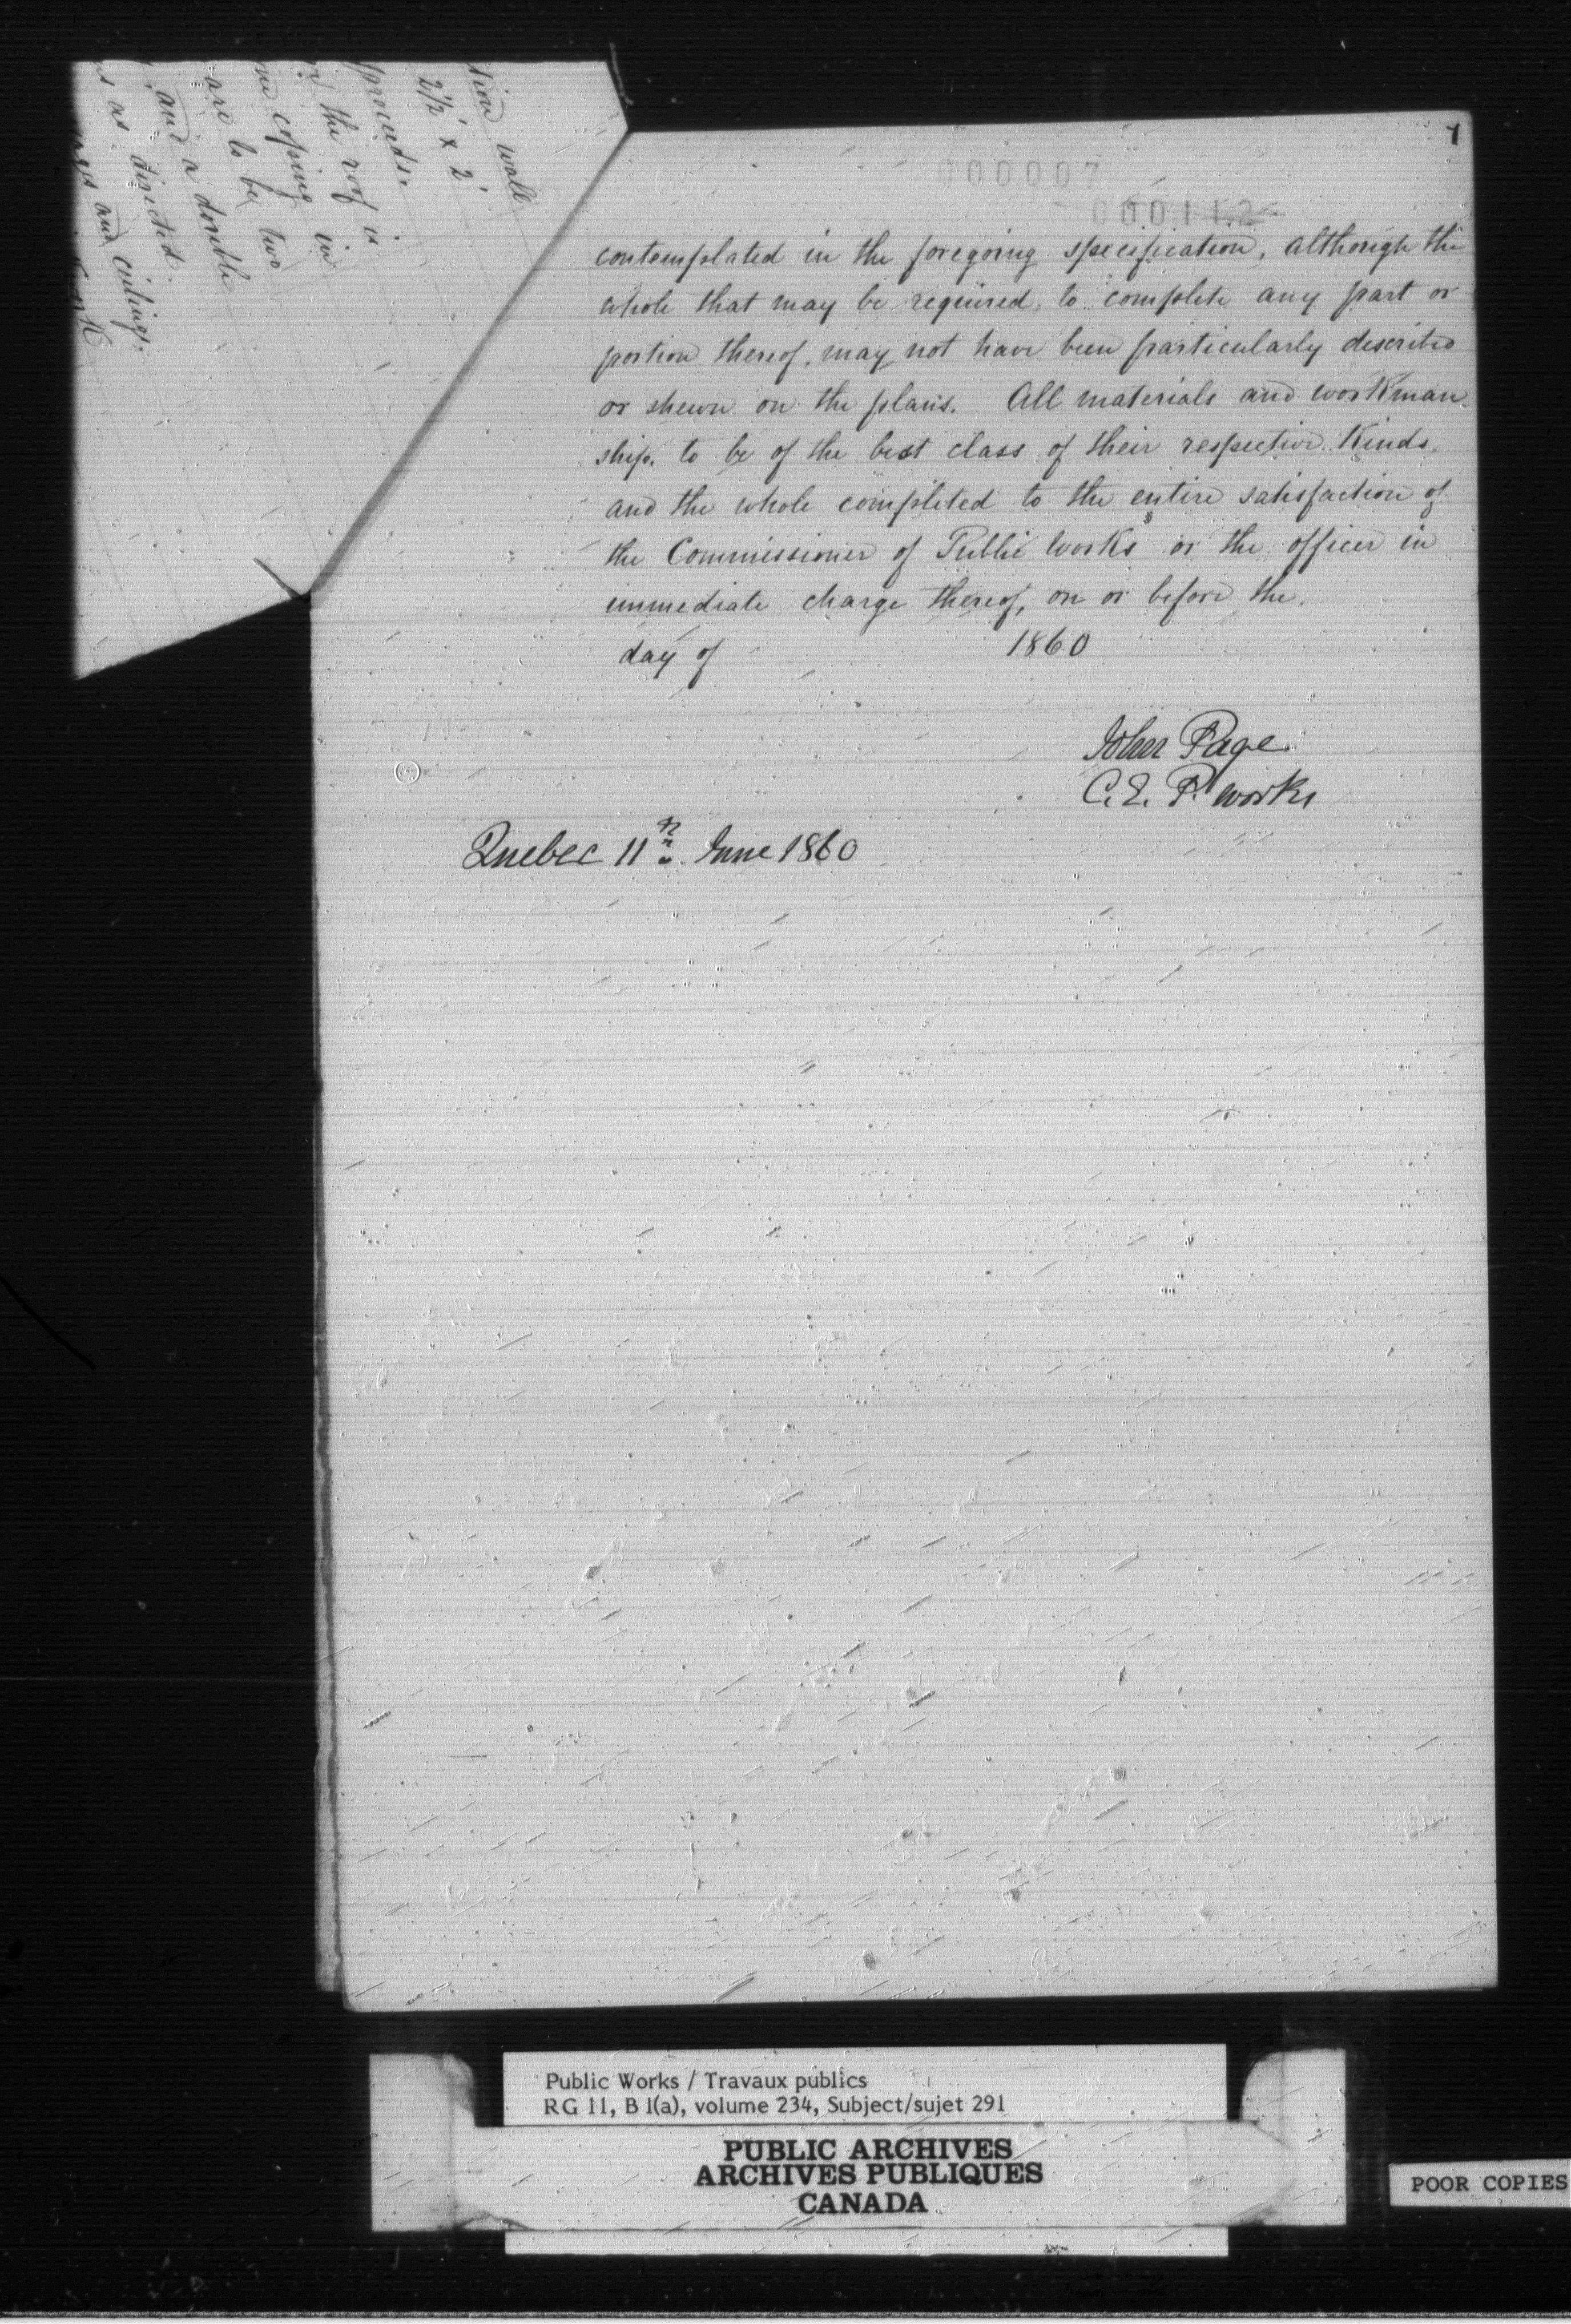 7
000007
000112
contemplated in the foregoing specification, although the
whole that may be required, to complete any part or
portion thereof, may not have been particularly described
or shewn on the plans. All materials and workman-
ship, to be of the best class of their respective Kinds,
and the whole completed to the entire satisfaction of
the Commissioner of Public Works or the officer in
immediate charge thereof, on or before the
day of 1860
John Page
C. E. P. Works
Quebec 11th June 1860
tion wall
2½' x 2'
proceeds.
the roof is
coping in
are to be two
and a double
as directed.
and ceilings,
Public Works / Travaux publics
RG 11, B 1(a), volume 234, Subject/sujet 291
PUBLIC ARCHIVES
ARCHIVES PUBLIQUES
CANADA
POOR COPIES